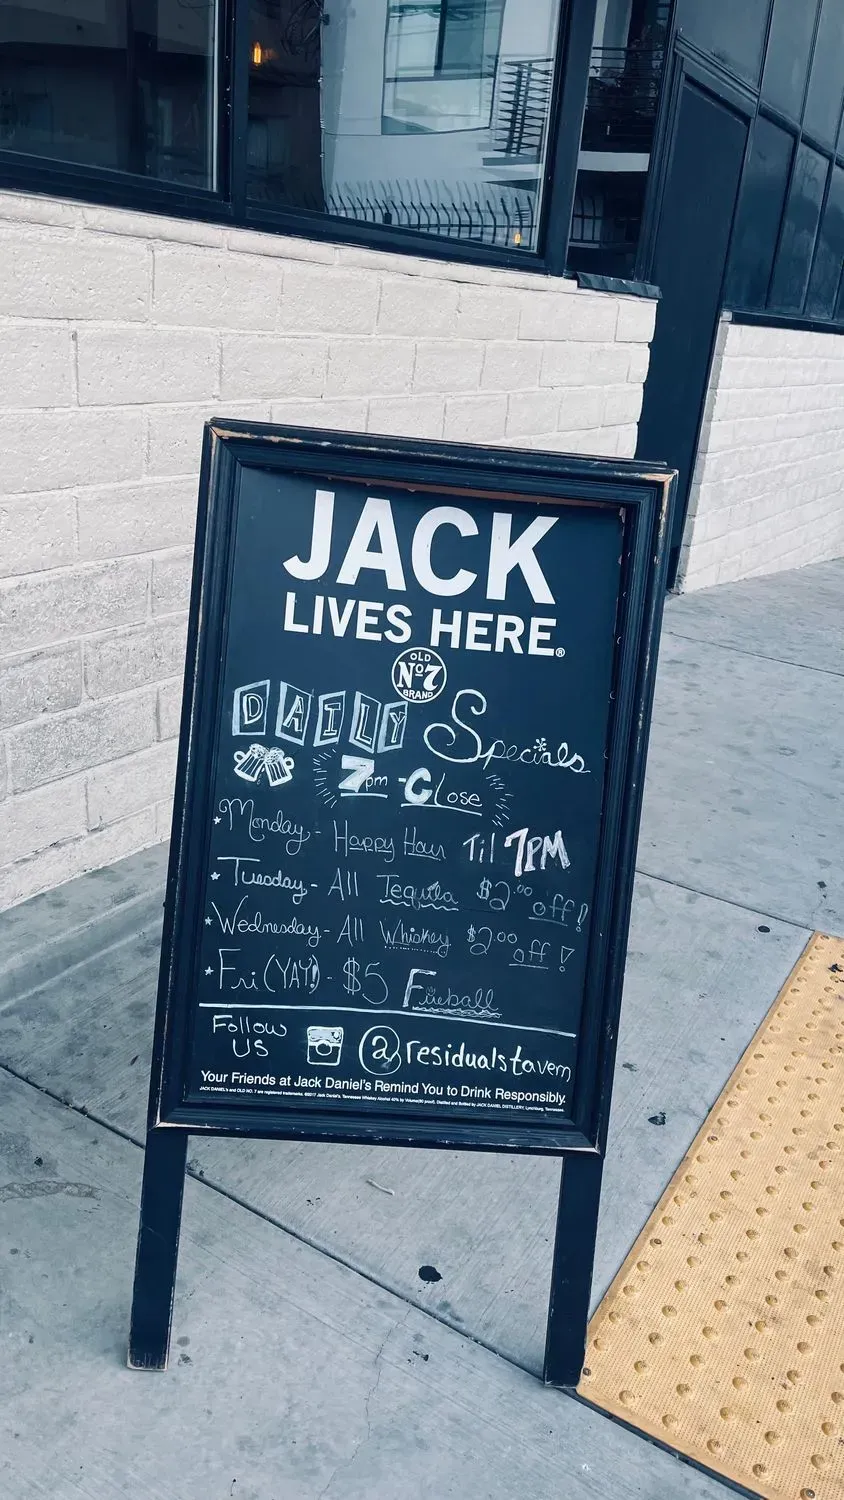 JACK
LIVES HERE®
OLD
Nº7
BRAND
DAILY Specials
7pm - Close
*Monday - Happy Hour Til 7PM
*Tuesday - All Tequila $2.00 off!
*Wednesday - All Whiskey $2.00 off!
*Fri (YAY!) - $5 Fireball
Follow
US
@residualstavern
Your Friends at Jack Daniel's Remind You to Drink Responsibly.
JACK DANIEL'S and OLD NO. 7 are registered trademarks. ©2017 Jack Daniel's. Tennessee Whiskey Alcohol 40% by Volume (80 proof). Distilled and Bottled by JACK DANIEL DISTILLERY, Lynchburg, Tennessee.